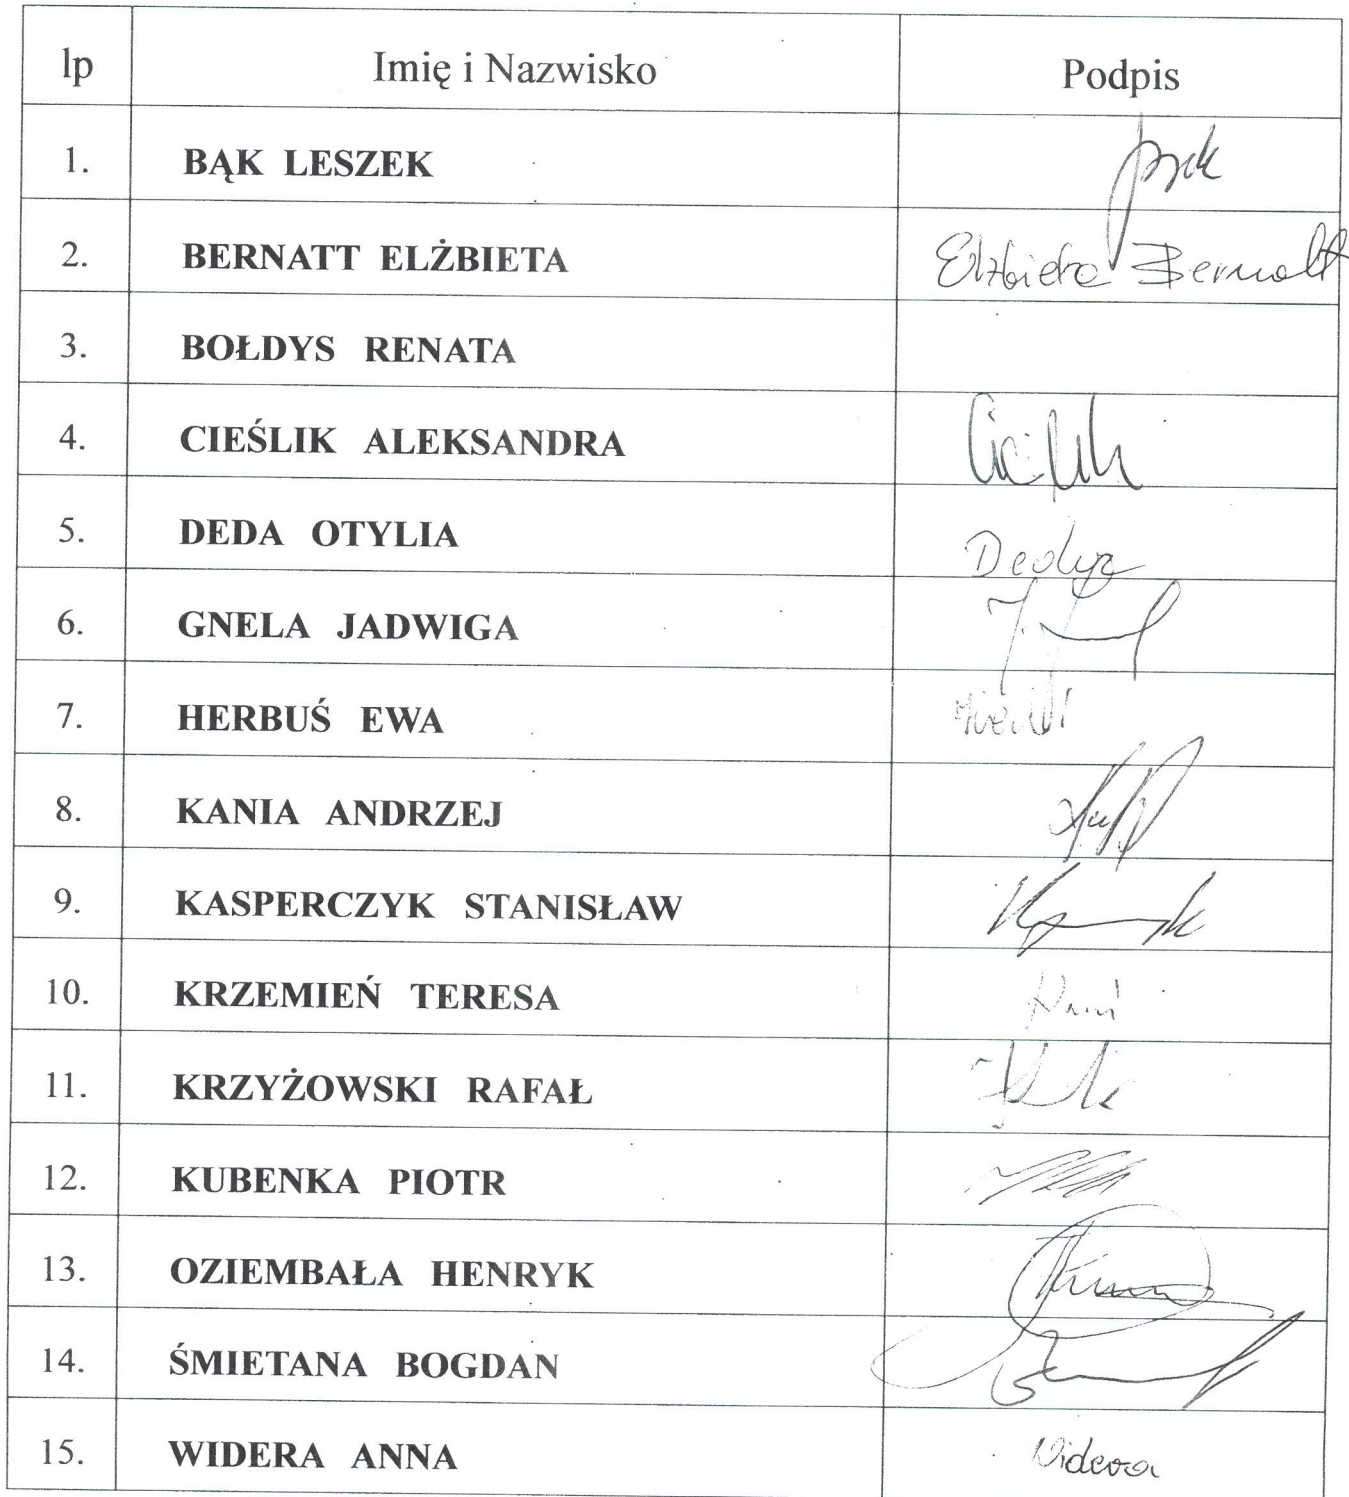 lp Imię i Nazwisko Podpis
1. BĄK LESZEK
2. BERNATT ELŻBIETA Elżbieta Bernatt
3. BOŁDYS RENATA
4. CIEŚLIK ALEKSANDRA
5. DEDA OTYLIA
6. GNELA JADWIGA
7. HERBUŚ EWA
8. KANIA ANDRZEJ
9. KASPERCZYK STANISŁAW
10. KRZEMIEŃ TERESA
11. KRZYŻOWSKI RAFAŁ
12. KUBENKA PIOTR
13. OZIEMBAŁA HENRYK
14. ŚMIETANA BOGDAN
15. WIDERA ANNA Widera